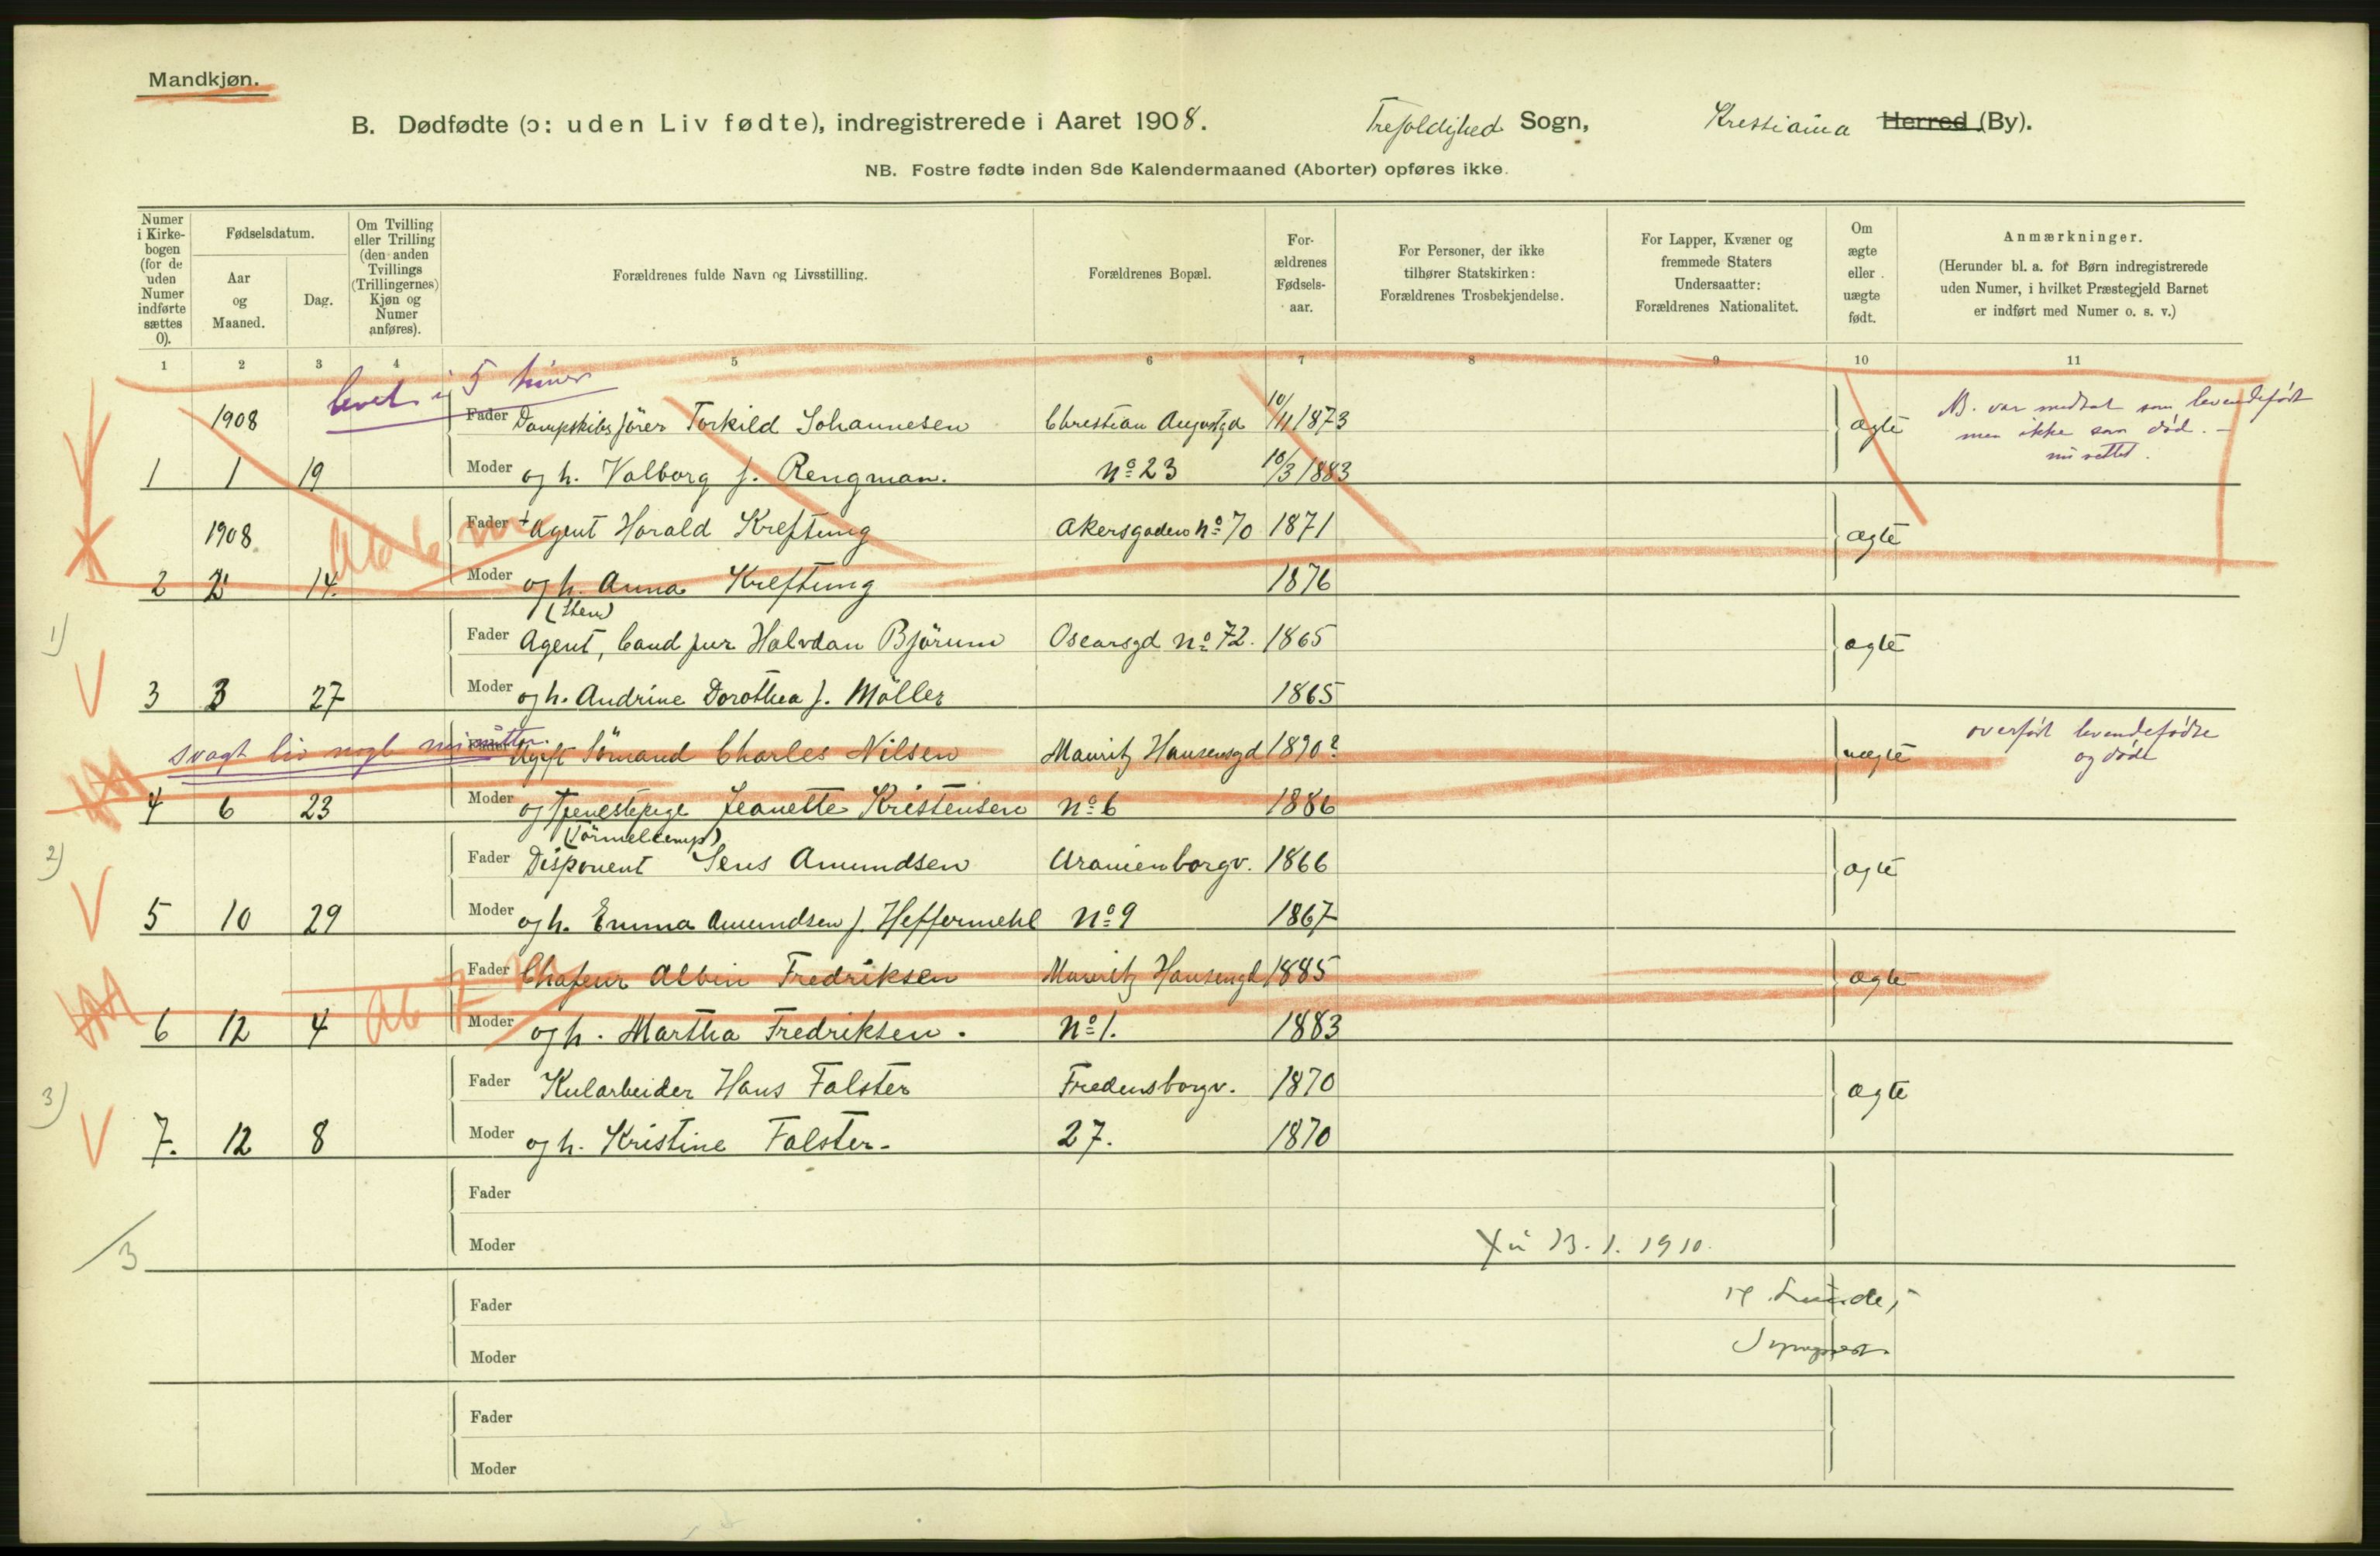 Mandkjøn.
B. Dødfødte (ɔ: uden Liv fødte), indregistrerede i Aaret 1908. Trefoldighed Sogn, Kristiania Herred (By).
NB. Fostre fødte inden 8de Kalendermaaned (Aborter) opføres ikke.
Numer i Kirkebogen (for de uden Numer indførte sættes 0).
Fødselsdatum.
Aar og Maaned.
Dag.
Om Tvilling eller Trilling (den anden Tvillings (Trillingernes) Kjøn og Numer anføres).
Forældrenes fulde Navn og Livsstilling.
Forældrenes Bopæl.
Forældrenes Fødselsaar.
For Personer, der ikke tilhører Statskirken: Forældrenes Trosbekjendelse.
For Lapper, Kvæner og fremmede Staters Undersaatter: Forældrenes Nationalitet.
Om ægte eller uægte født.
Anmærkninger.
(Herunder bl. a. for Børn indregistrerede uden Numer, i hvilket Præstegjeld Barnet er indført med Numer o. s. v.)
1 2 3 4 5 6 7 8 9 10 11
levet i 5 timer
1908 Fader Dampskibsfører Torkild Johannesen Christian Augustgd 10/11 1873 ægte NB. var medtat som levendefødt
men ikke som død. -
nu rettet.
1 1 19 Moder og h. Valborg f. Rengman. No 23 10/3 1883
1908 Fader + Agent Harald Kreftung Akersgaden No 70 1871 ægte
2 2 14. Moder og h. Anna Kreftung 1876
(Sten)
1) Fader Agent, cand jur Halvdan Bjørum Oscarsgd No 72. 1865 ægte
V 3 3 27 Moder og h. Andrine Dorothea f. Møller 1865
svagt liv nogle minutter.
Fader Ugift Sømand Charles Nilsen Mauritz Hansensgd 1890? uægte overført levendefødte
og døde
4 6 23 Moder og Tjenestepige Jeanette Kristensen No 6 1886
2) Fader Disponent Jens Amundsen Uranienborgv. 1866 ægte
V 5 10 29 Moder og h. Emma Amundsen f. Heffermehl No 9 1867
Fader Chafeur Albin Fredriksen Mauritz Hansensgd 1885 ægte
6 12 4 Ab Moder og h. Martha Fredriksen. No 1. 1883
3) Fader Kularbeider Hans Falster Fredensborgv. 1870 ægte
V 7. 12 8 Moder og h. Kristine Falster. 27. 1870
Fader
/3 Moder 13. 1. 1910.
Fader
Moder
Fader
Moder